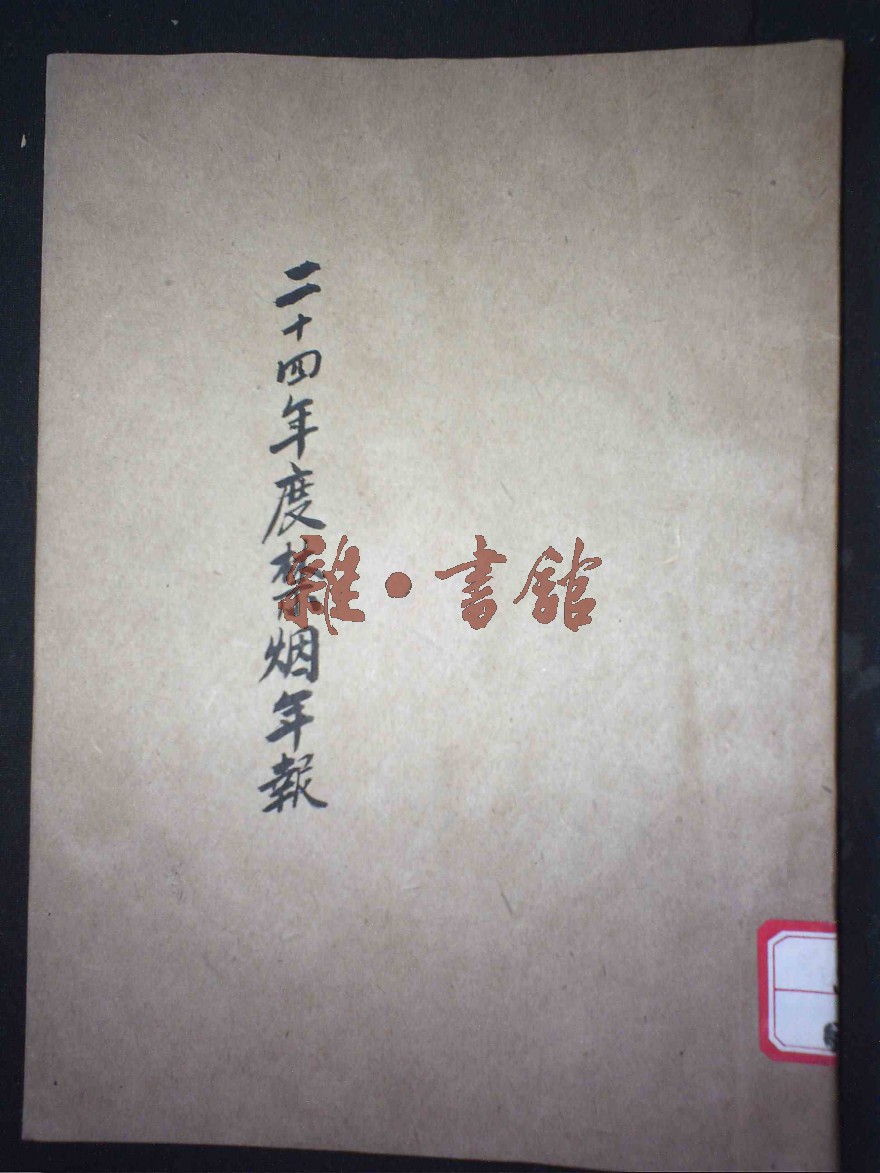 二十四年度禁烟年報
雜·書館